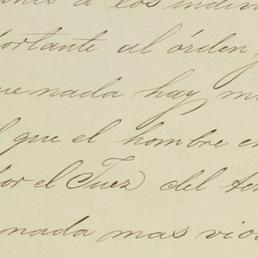 a los indivi
portante al órden y
que nada hay m
l que el hombre en
por el Juez del ter
nada mas viol